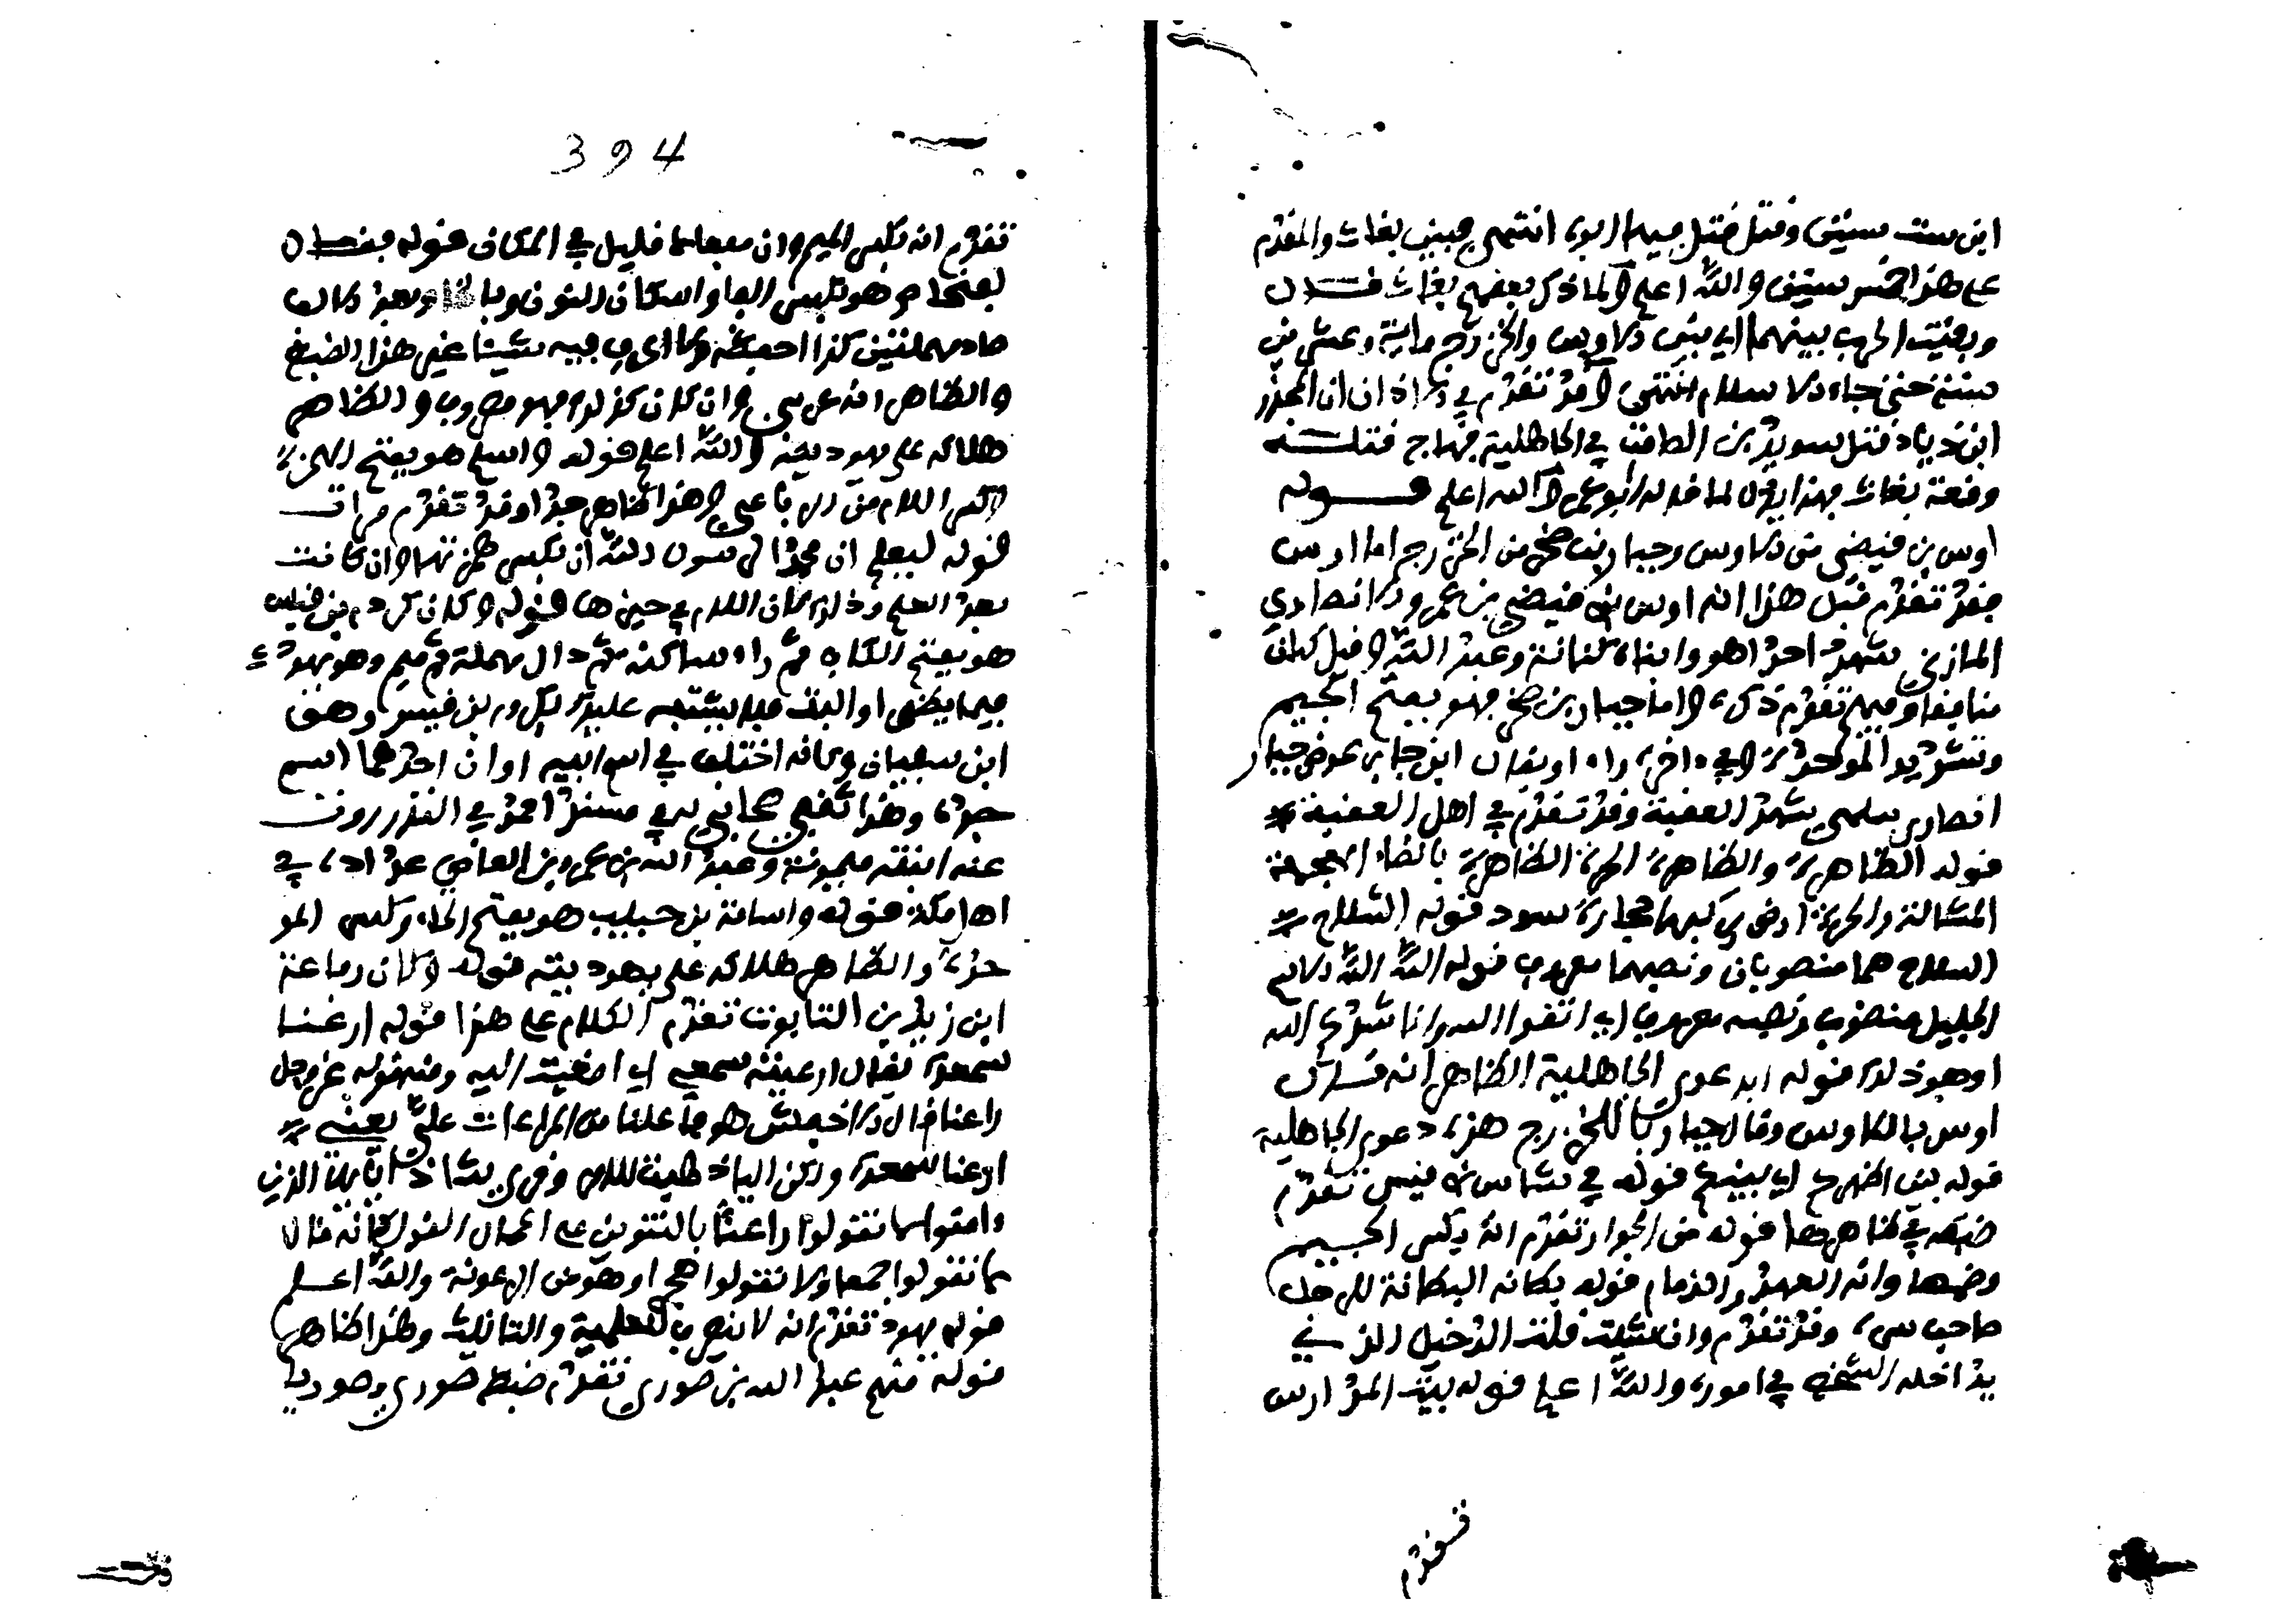 ابن ست سنين وقتل قتل فيها ابوه انتهى فبين بعاث والمقدم
على هذا خمس سنين والله اعلم ولما ذكر بعضهم بعاث قال
وبقيت الحرب بينهما اي بين الاوس والخزرج ماية وعشرين
سنة حتى جاء الاسلام انتهى وقد تقدم في الاذان ان المجذر
ابن ذياد قتل سويد بن الصامت في الجاهلية فهاج قتله
وقعة بعاث فهذا لما قاله ابو عمر والله اعلم قوله
اوس بن قيضي من الاوس وجبار بن صخر من الخزرج اما اوس
فقد تقدم قبل هذا انه اوس بن قيضي بن عمرو الانصاري
المازني شهد احدا هو وابناه كنانة وعبد الله وقيل كان
منافقا وفيهم تقدم ذكره واما جبار بن صخر فهو بفتح الجيم
وتشديد الموحدة وفي اخره راء ويقال ابن جابر عوض جبار
انصاري سلمي شهد العقبة وقد تقدم في اهل العقبة
قوله الظاهرة والظاهرة الحرة الظاهرة بالظاء المعجمة
المشالة والحرة ارض تركبها حجارة سود قوله السلاح
السلاح هما منصوبان ونصبهما معروف قوله الله الله الاسم
الجليل منصوب ونصبه معروف اي اتقوا الله وانا شدكم الله
او نحو ذلك قوله ابدعوى الجاهلية الظاهر انه قال
اوس يا للاوس وقال جبار يا للخزرج هذه دعوى الجاهلية
قوله بين اظهركم اي بينكم قوله في شاس بن قيس تقدم
ضبطه في ظاهرها قوله من الجوار تقدم انه بكسر الجيم
وضمها وانه العهد والذمام قوله بطانة البطانة للرجل
صاحب سره وقد تقدم وان شئت قلت الدخيل الذي
يداخله الشخص في اموره والله اعلم قوله بيت المدارس
تقدم
394
تقدم انه بكسر الميم وان مفعالا قليل في المكان قوله فنحاص
بفتحا م هو بكسر الفا واسكان النون وبالحا وبعد الالف
صاد مهملتين كذا احفظه ولا ارى فيه شيئا غير هذا الضبط
والظاهر انه عربي وان كان كذلك فهو مصروف والظاهر
هلاكه على يهوديته والله اعلم قوله واسلم هو بفتح الهمزة
وكسر اللام من الرباعي وهذا ظاهر جدا وقد تقدم مرات
قوله ليعلم ان محمدا رسول الله ان بكسر همزتها وان كانت
بعد العلم وذلك لان اللام في حيزها قوله وكان كردم بن قيس
هو بفتح الكاف ثم راء ساكنة ثم دال مهملة ثم ميم وهو يهودي
فيما يظهر او الف فلا يشتبه عليك بكردم بن قيس وهو
ابن سفيان ولانه اختلف في اسم ابيه او ان احدهما اسم
جده وهذا ثقفي صحابي في مسند احمد في النذر روت
عنه ابنته ميمونة وعبد الله بن عمرو بن العاصي عداده في
اهل مكة قوله واسامة بن حبيب هو بفتح الحاء وكسر المو
حدة والظاهر هلاكه على يهوديته قوله وكان رفاعة
ابن زيد بن التابوت تقدم الكلام على هذا قوله ارعنا
سمعك يقال ارعيته سمعي اي اصغيت اليه ومنه قوله عز وجل
راعنا قال الاخفش هو فاعلنا من المراعات على يعني
ارعنا سمعك ولكن الياء ذهبت للامر وقري يشاذ يا يها الذين
ءامنوا لا تقولوا راعنا بالتنوين على اعمال القول كانه قال
لا تقولوا حمقا ولا تقولوا هجرا وهو من الرعونة والله اعلم
قوله يهود تقدم انه لا ينصرف للعلمية والتانيث وهذا ظاهر
قوله منهم عبد الله بن صوري تقدم ضبط صوري وصوريا